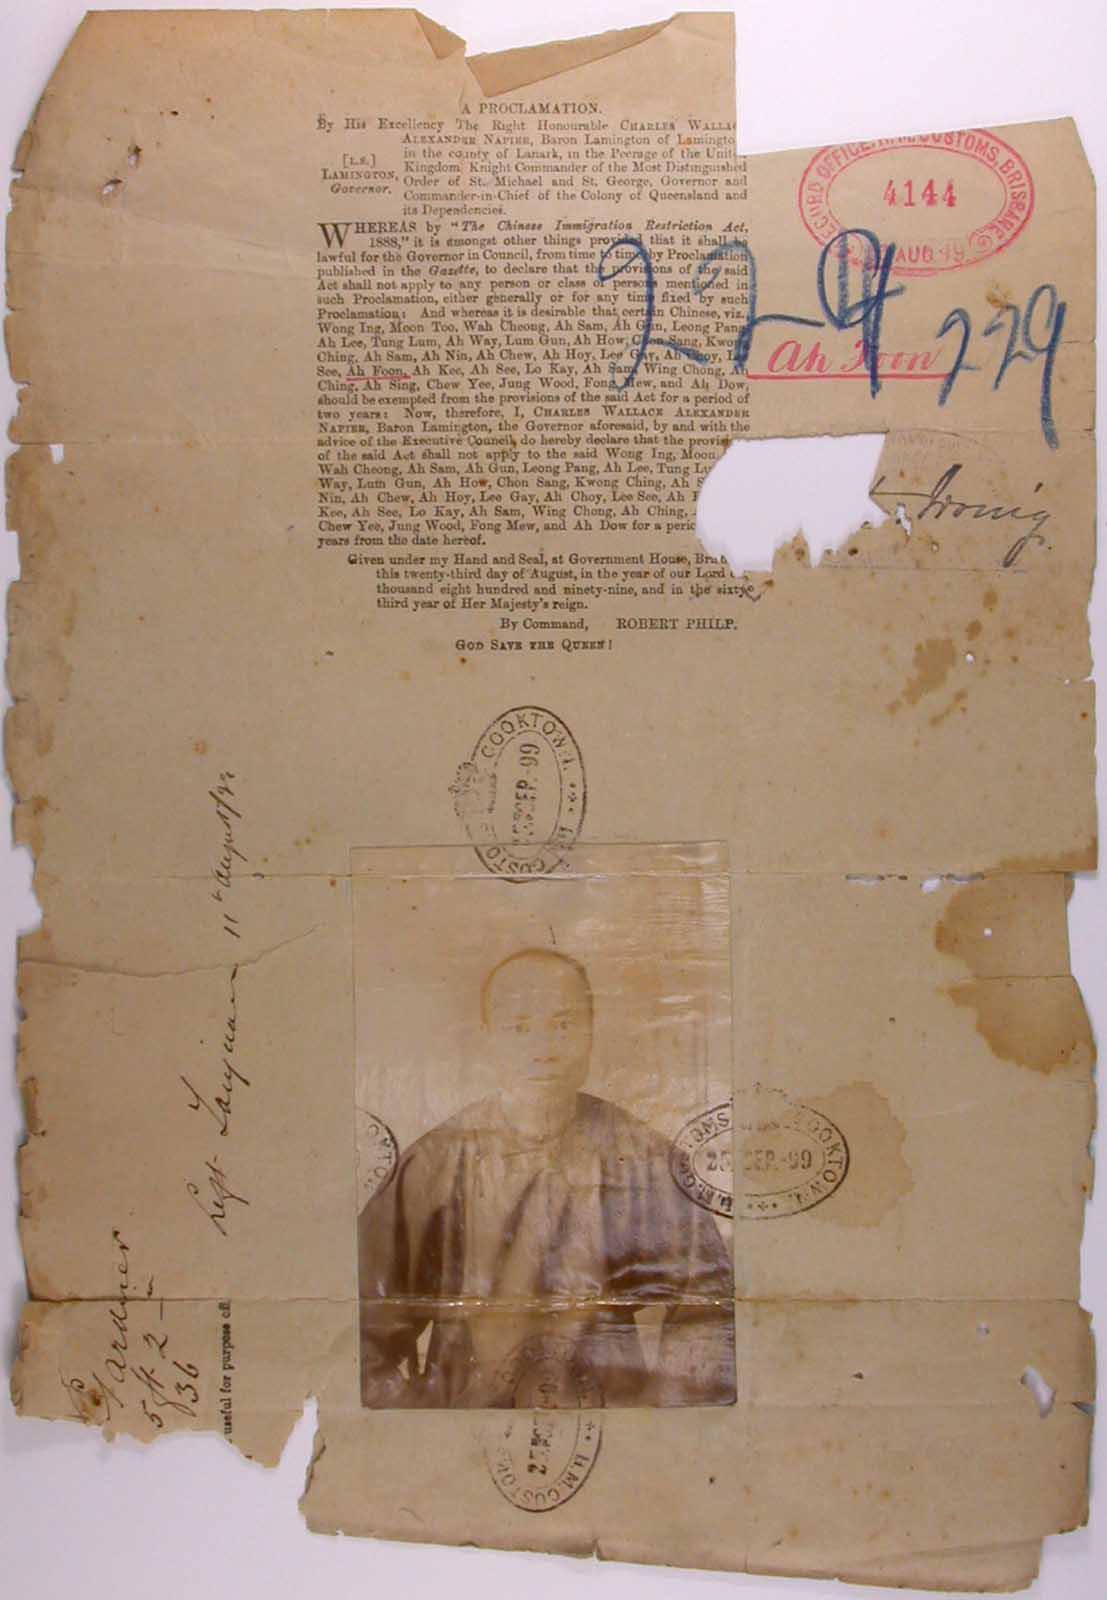 A PROCLAMATION.
By His Excellency The Right Honourable CHARLES WALLAC
ALEXANDER NAPIER, Baron Lamington of Lamington
[L.S.]
LAMINGTON,
Governor.
in the county of Lanark, in the Peerage of the United
Kingdom, Knight Commander of the Most Distinguished
Order of St. Michael and St. George, Governor and
Commander-in-Chief of the Colony of Queensland and
its Dependencies.
WHEREAS by "The Chinese Immigration Restriction Act,
1888," it is amongst other things provided that it shall be
lawful for the Governor in Council, from time to time, by Proclamation
published in the Gazette, to declare that the provisions of the said
Act shall not apply to any person or class of persons mentioned in
such Proclamation, either generally or for any time fixed by such
Proclamation: And whereas it is desirable that certain Chinese, viz.,
Wong Ing, Moon Too, Wah Cheong, Ah Sam, Ah Gun, Leong Pang,
Ah Lee, Tung Lum, Ah Way, Lum Gun, Ah How, Chon Sang, Kwong
Ching, Ah Sam, Ah Nin, Ah Chew, Ah Hoy, Lee Gay, Ah Choy, L
See, Ah Foon, Ah Kee, Ah See, Lo Kay, Ah Sam, Wing Chong, Ah
Ching, Ah Sing, Chew Yee, Jung Wood, Fong Mew, and Ah Dow,
should be exempted from the provisions of the said Act for a period of
two years: Now, therefore, I, CHARLES WALLACE ALEXANDER
NAPIER, Baron Lamington, the Governor aforesaid, by and with the
advice of the Executive Council, do hereby declare that the provis
of the said Act shall not apply to the said Wong Ing, Moon
Wah Cheong, Ah Sam, Ah Gun, Leong Pang, Ah Lee, Tung Lu
Way, Lum Gun, Ah How, Chon Sang, Kwong Ching, Ah S
Nin, Ah Chew, Ah Hoy, Lee Gay, Ah Choy, Lee See, Ah F
Kee, Ah See, Lo Kay, Ah Sam, Wing Chong, Ah Ching,
Chew Yee, Jung Wood, Fong Mew, and Ah Dow for a perio
years from the date hereof.
Given under my Hand and Seal, at Government House, Bris
this twenty-third day of August, in the year of our Lord
thousand eight hundred and ninety-nine, and in the sixty-
third year of Her Majesty's reign.
By Command, ROBERT PHILP.
GOD SAVE THE QUEEN!
RECORD OFFICE, H.M. CUSTOMS, BRISBANE
4144
AUG 99
224
229
Ah Foon
Irving
H.M. CUSTOMS COOKTOWN.
25 SEP. 99
H.M. CUSTOMS COOKTOWN.
25 SEP. 99
COOKTOWN
H.M. CUSTOMS
25
11th August
Gardner
5 ft 2
36
useful for purpose of